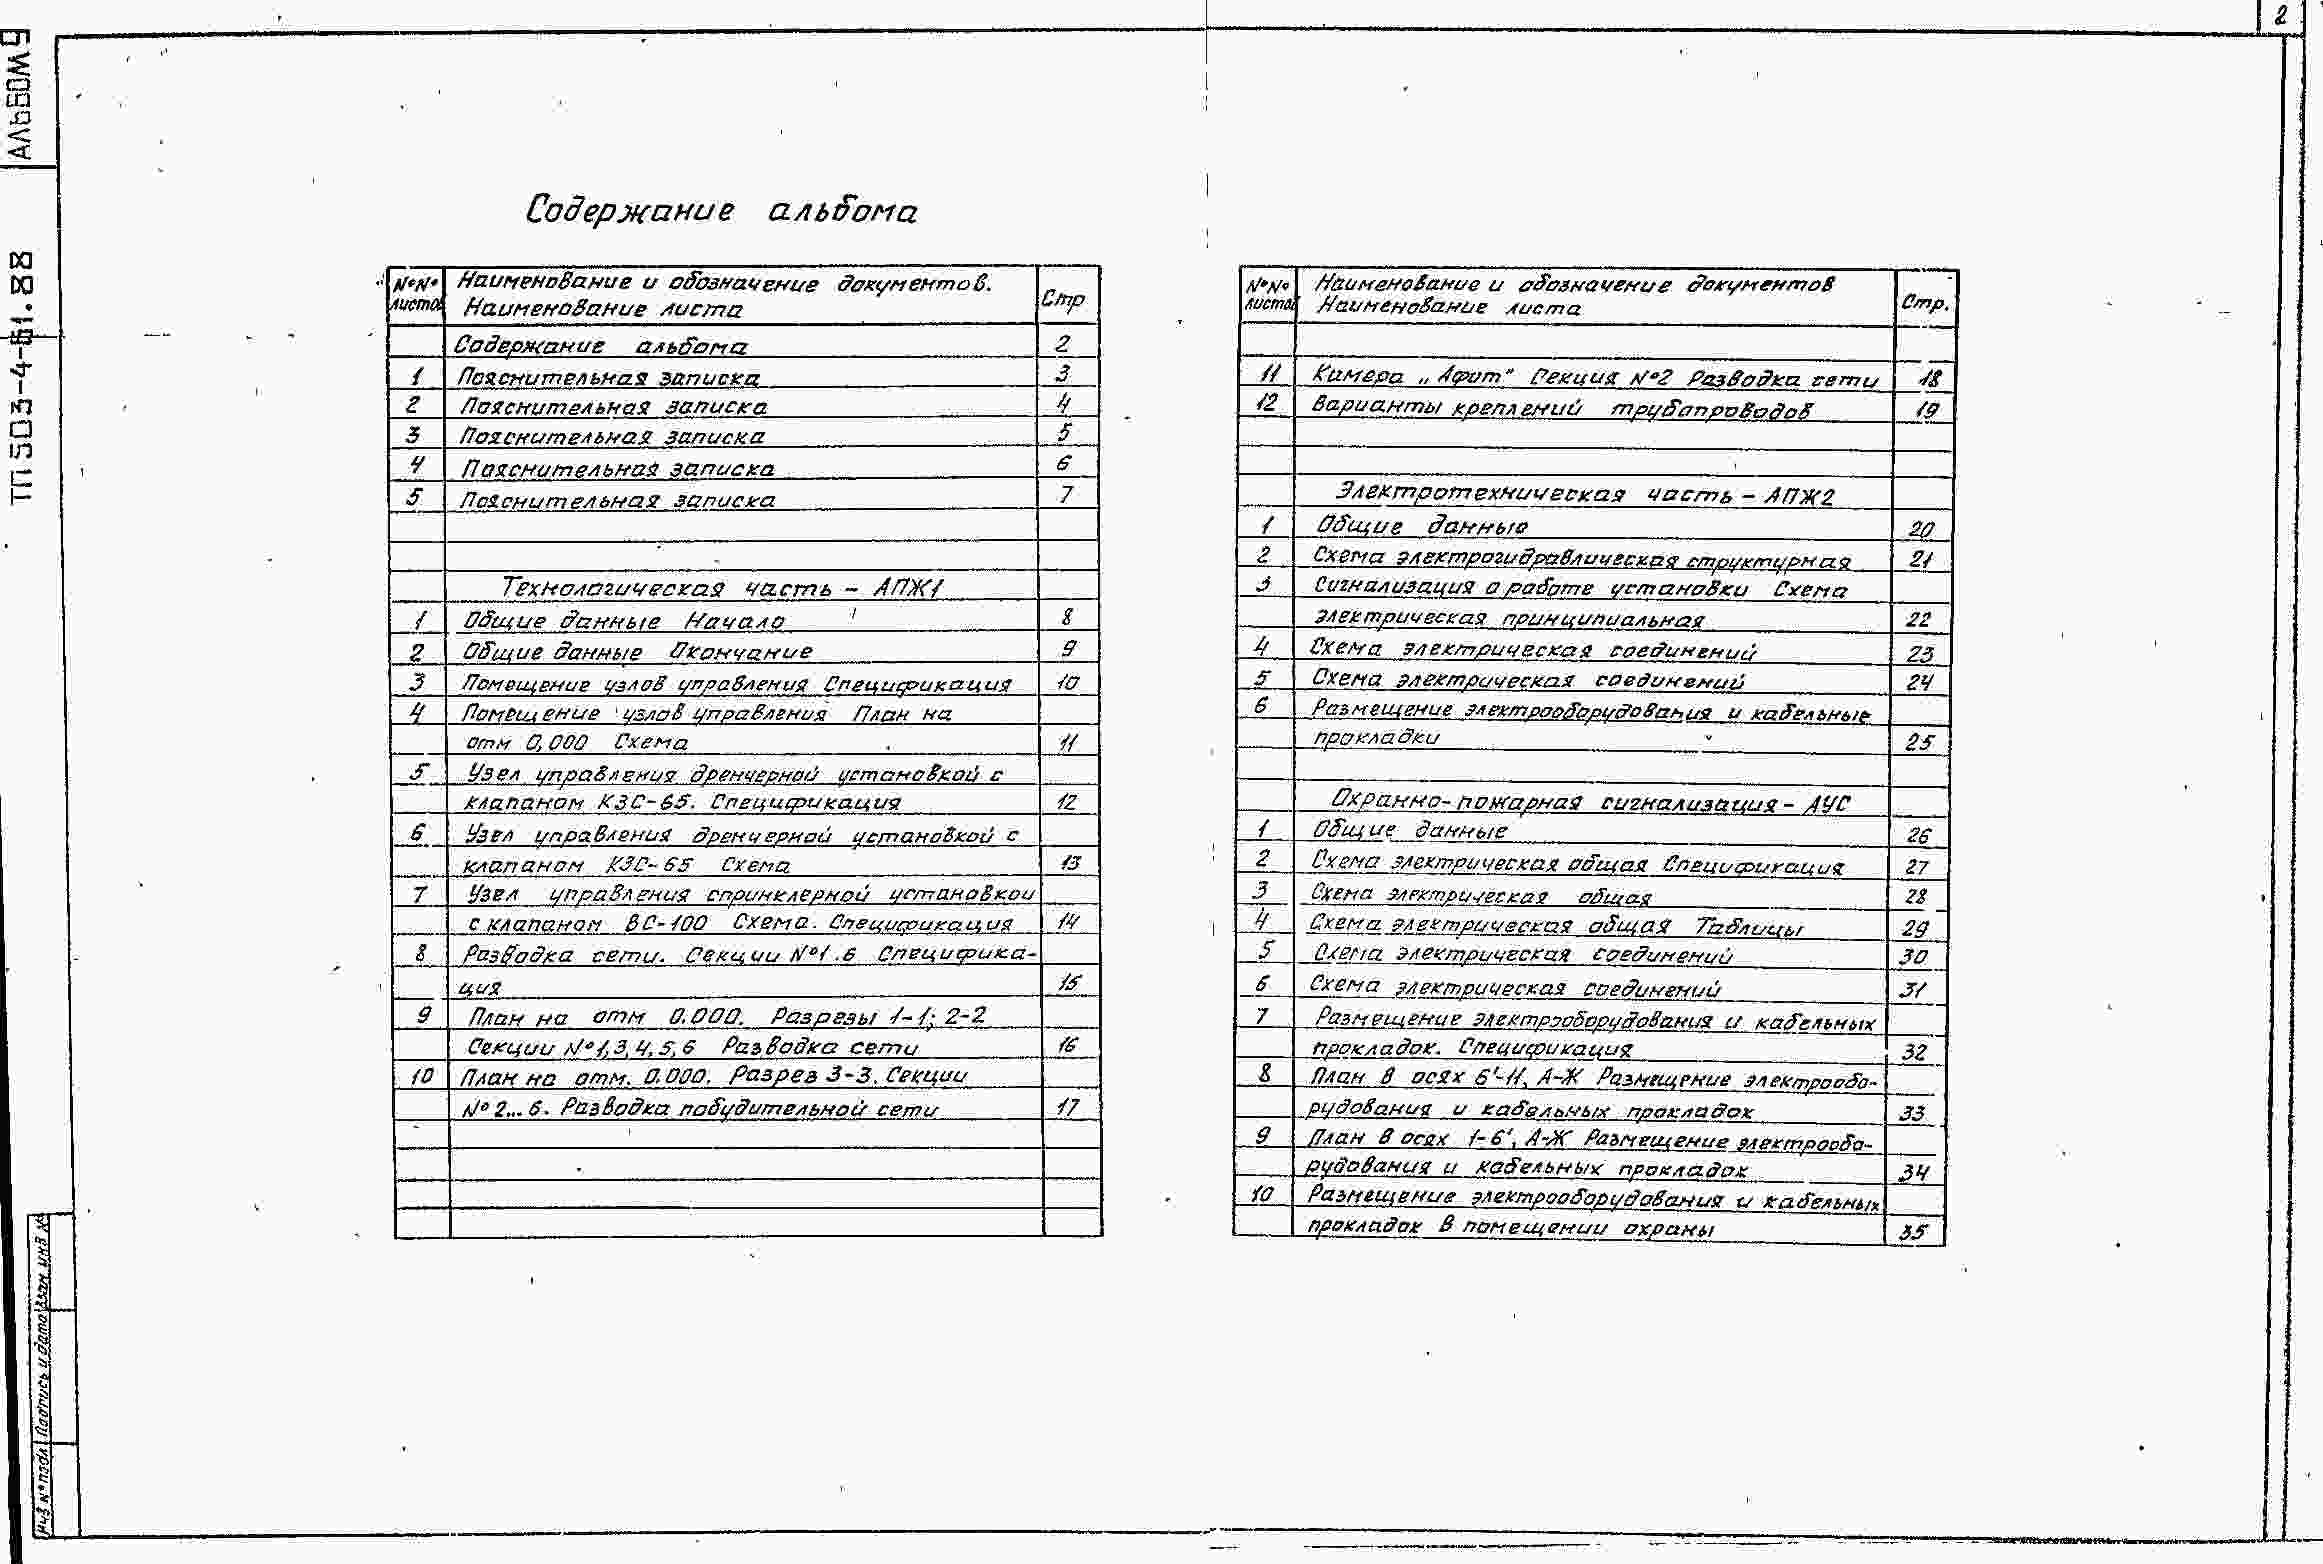 2
АЛЬБОМ 5
ТП 503-4-51.88
Содержание альбома
№№ листов Наименование и обозначение документов. Наименование листа Стр
Содержание альбома 2
1 Пояснительная записка 3
2 Пояснительная записка 4
3 Пояснительная записка 5
4 Пояснительная записка 6
5 Пояснительная записка 7
Технологическая часть – АПЖ1
1 Общие данные Начало 8
2 Общие данные Окончание 9
3 Помещение узлов управления Спецификация 10
4 Помещение узлов управления План на
отм 0,000 Схема 11
5 Узел управления дренчерной установкой с
клапаном КЗС-65. Спецификация 12
6 Узел управления дренчерной установкой с
клапаном КЗС-65 Схема 13
7 Узел управления спринклерной установкой
с клапаном ВС-100 Схема. Спецификация 14
8 Разводка сети. Секции №1.6 Специфика-
ция 15
9 План на отм 0.000. Разрезы 1-1; 2-2
Секции №1,3,4,5,6 Разводка сети 16
10 План на отм. 0.000. Разрез 3-3. Секции
№2...6. Разводка побудительной сети 17
№№ листов Наименование и обозначение документов Наименование листа Стр.
11 Камера „Афит" Секция №2 Разводка сети 18
12 Варианты креплений трубопроводов 19
Электротехническая часть – АПЖ2
1 Общие данные 20
2 Схема электрогидравлическая структурная 21
3 Сигнализация о работе установки Схема
электрическая принципиальная 22
4 Схема электрическая соединений 23
5 Схема электрическая соединений 24
6 Размещение электрооборудования и кабельные
прокладки 25
Охранно-пожарная сигнализация – АУС
1 Общие данные 26
2 Схема электрическая общая Спецификация 27
3 Схема электрическая общая 28
4 Схема электрическая общая Таблицы 29
5 Схема электрическая соединений 30
6 Схема электрическая соединений 31
7 Размещение электрооборудования и кабельных
прокладок. Спецификация 32
8 План в осях 6'-11, А-Ж Размещение электрообо-
рудования и кабельных прокладок 33
9 План в осях 1-6', А-Ж Размещение электрообо-
рудования и кабельных прокладок 34
10 Размещение электрооборудования и кабельных
прокладок в помещении охраны 35
Взам инв №
Подпись и дата
Инв № подл